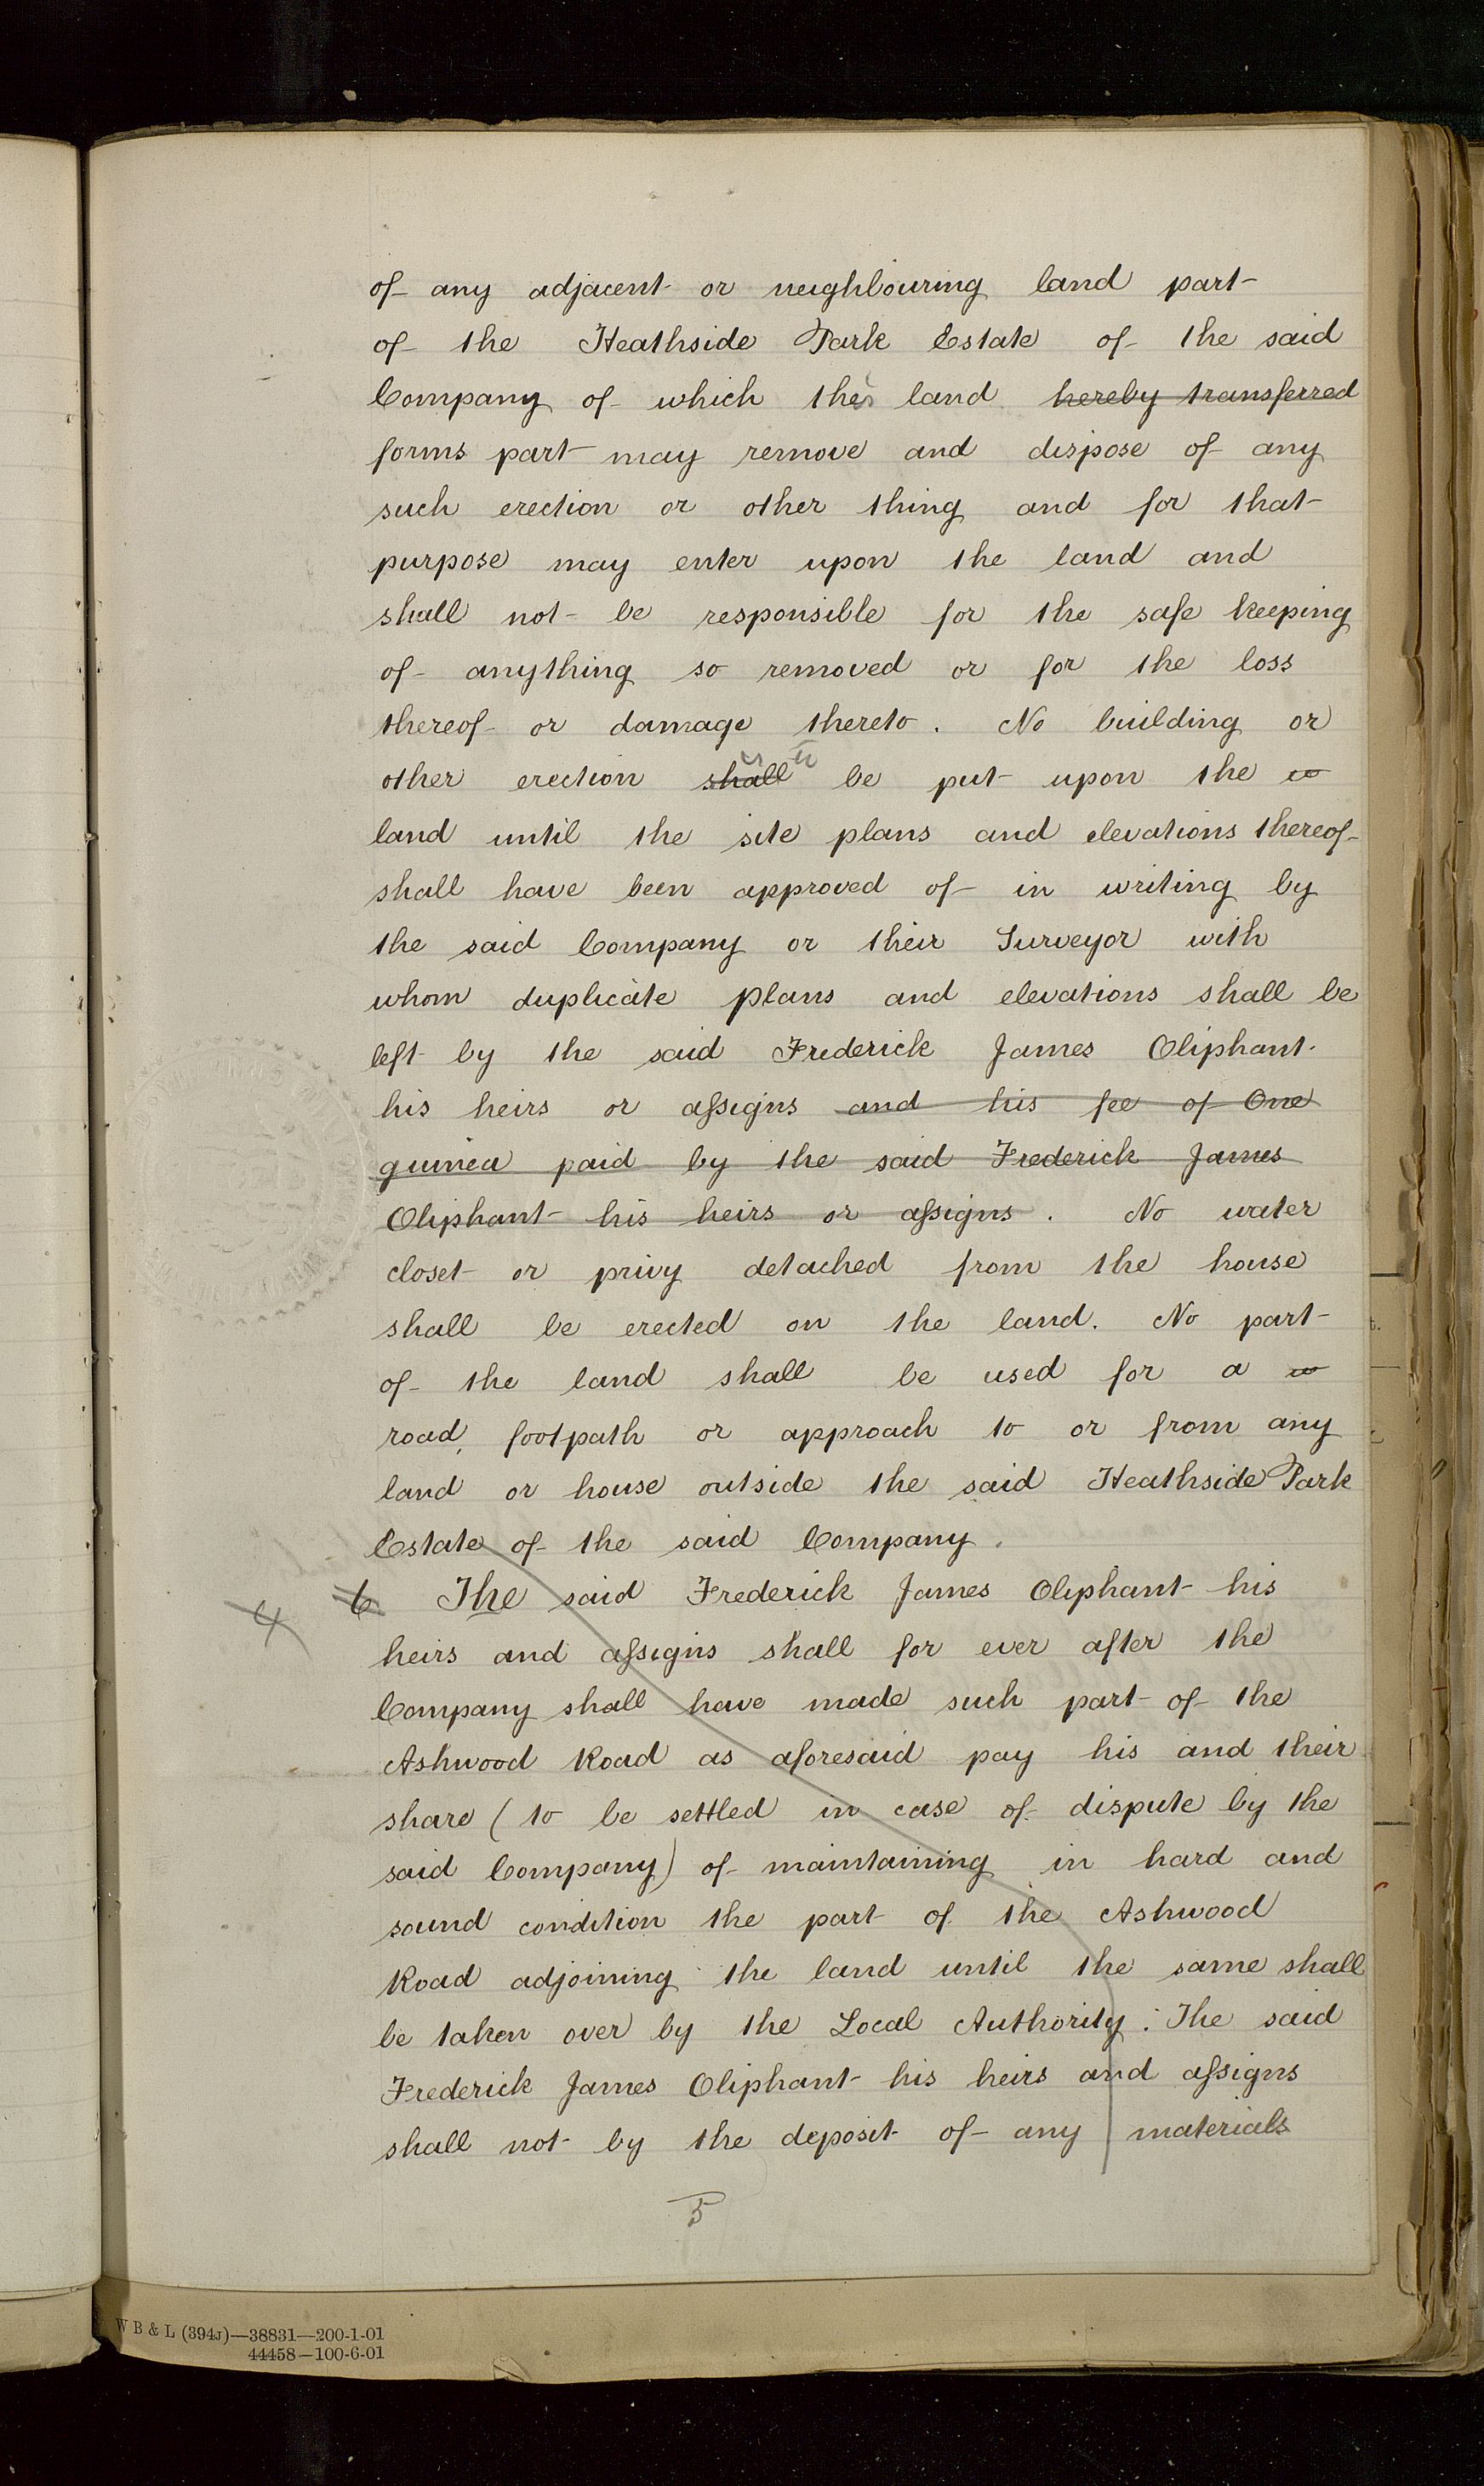 of any adjacent or neighbouring land part
of the Heathside Park Estate of the said
Company of which the land hereby transferred
forms part may remove and dispose of any
such erection or other thing and for that
purpose may enter upon the land and
shall not be responsible for the safe keeping
of anything so removed or for the loss
thereof or damage thereto. No building or
is to
other erection shall be put upon the
land until the site plans and elevations thereof
shall have been approved of in writing by
the said Company or their Surveyor with
whom duplicate plans and elevations shall be
left by the said Frederick James Oliphant
his heirs or assigns and his fee of One
guinea paid by the said Frederick James
Oliphant his heirs or assigns. No water
closet or privy detached from the house
shall be erected on the land. No part
of the land shall be used for a
road, footpath or approach to or from any
land or house outside the said Heathside Park
Estate of the said Company.
4 6 The said Frederick James Oliphant his
heirs and assigns shall for ever after the
Company shall have made such part of the
Ashwood Road as aforesaid pay his and their
share (to be settled in case of dispute by the
said Company) of maintaining in hard and
sound condition the part of the Ashwood
Road adjoining the land until the same shall
be taken over by the Local Authority. The said
Frederick James Oliphant his heirs and assigns
shall not by the deposit of any materials
5
W B & L (394J)—38831—200-1-01
44458—100-6-01